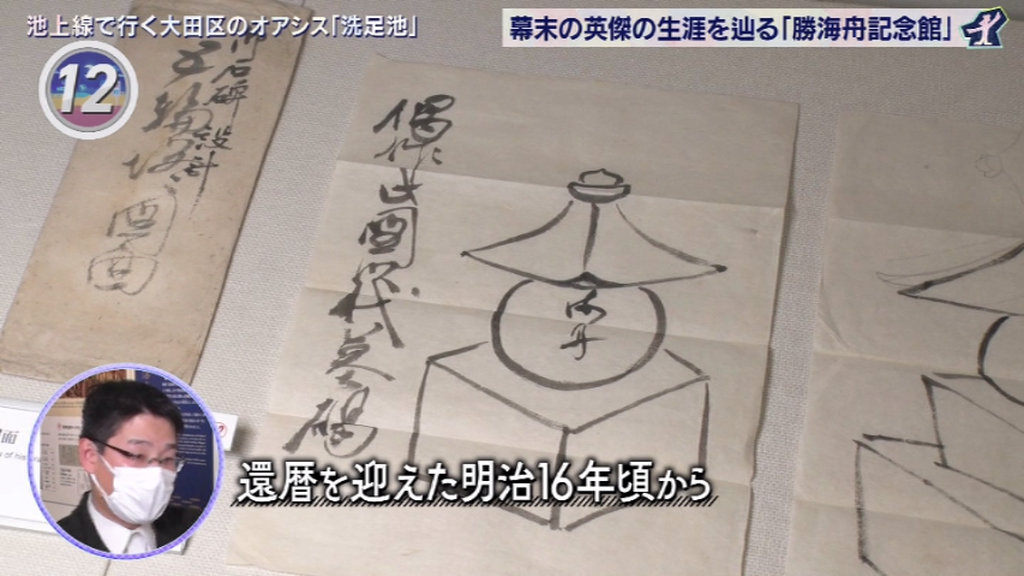 池上線で行く大田区のオアシス「洗足池」
幕末の英傑の生涯を辿る「勝海舟記念館」
12
石碑設計
五輪塔之図面
偶作此図代墓碣
海舟
還暦を迎えた明治16年頃から